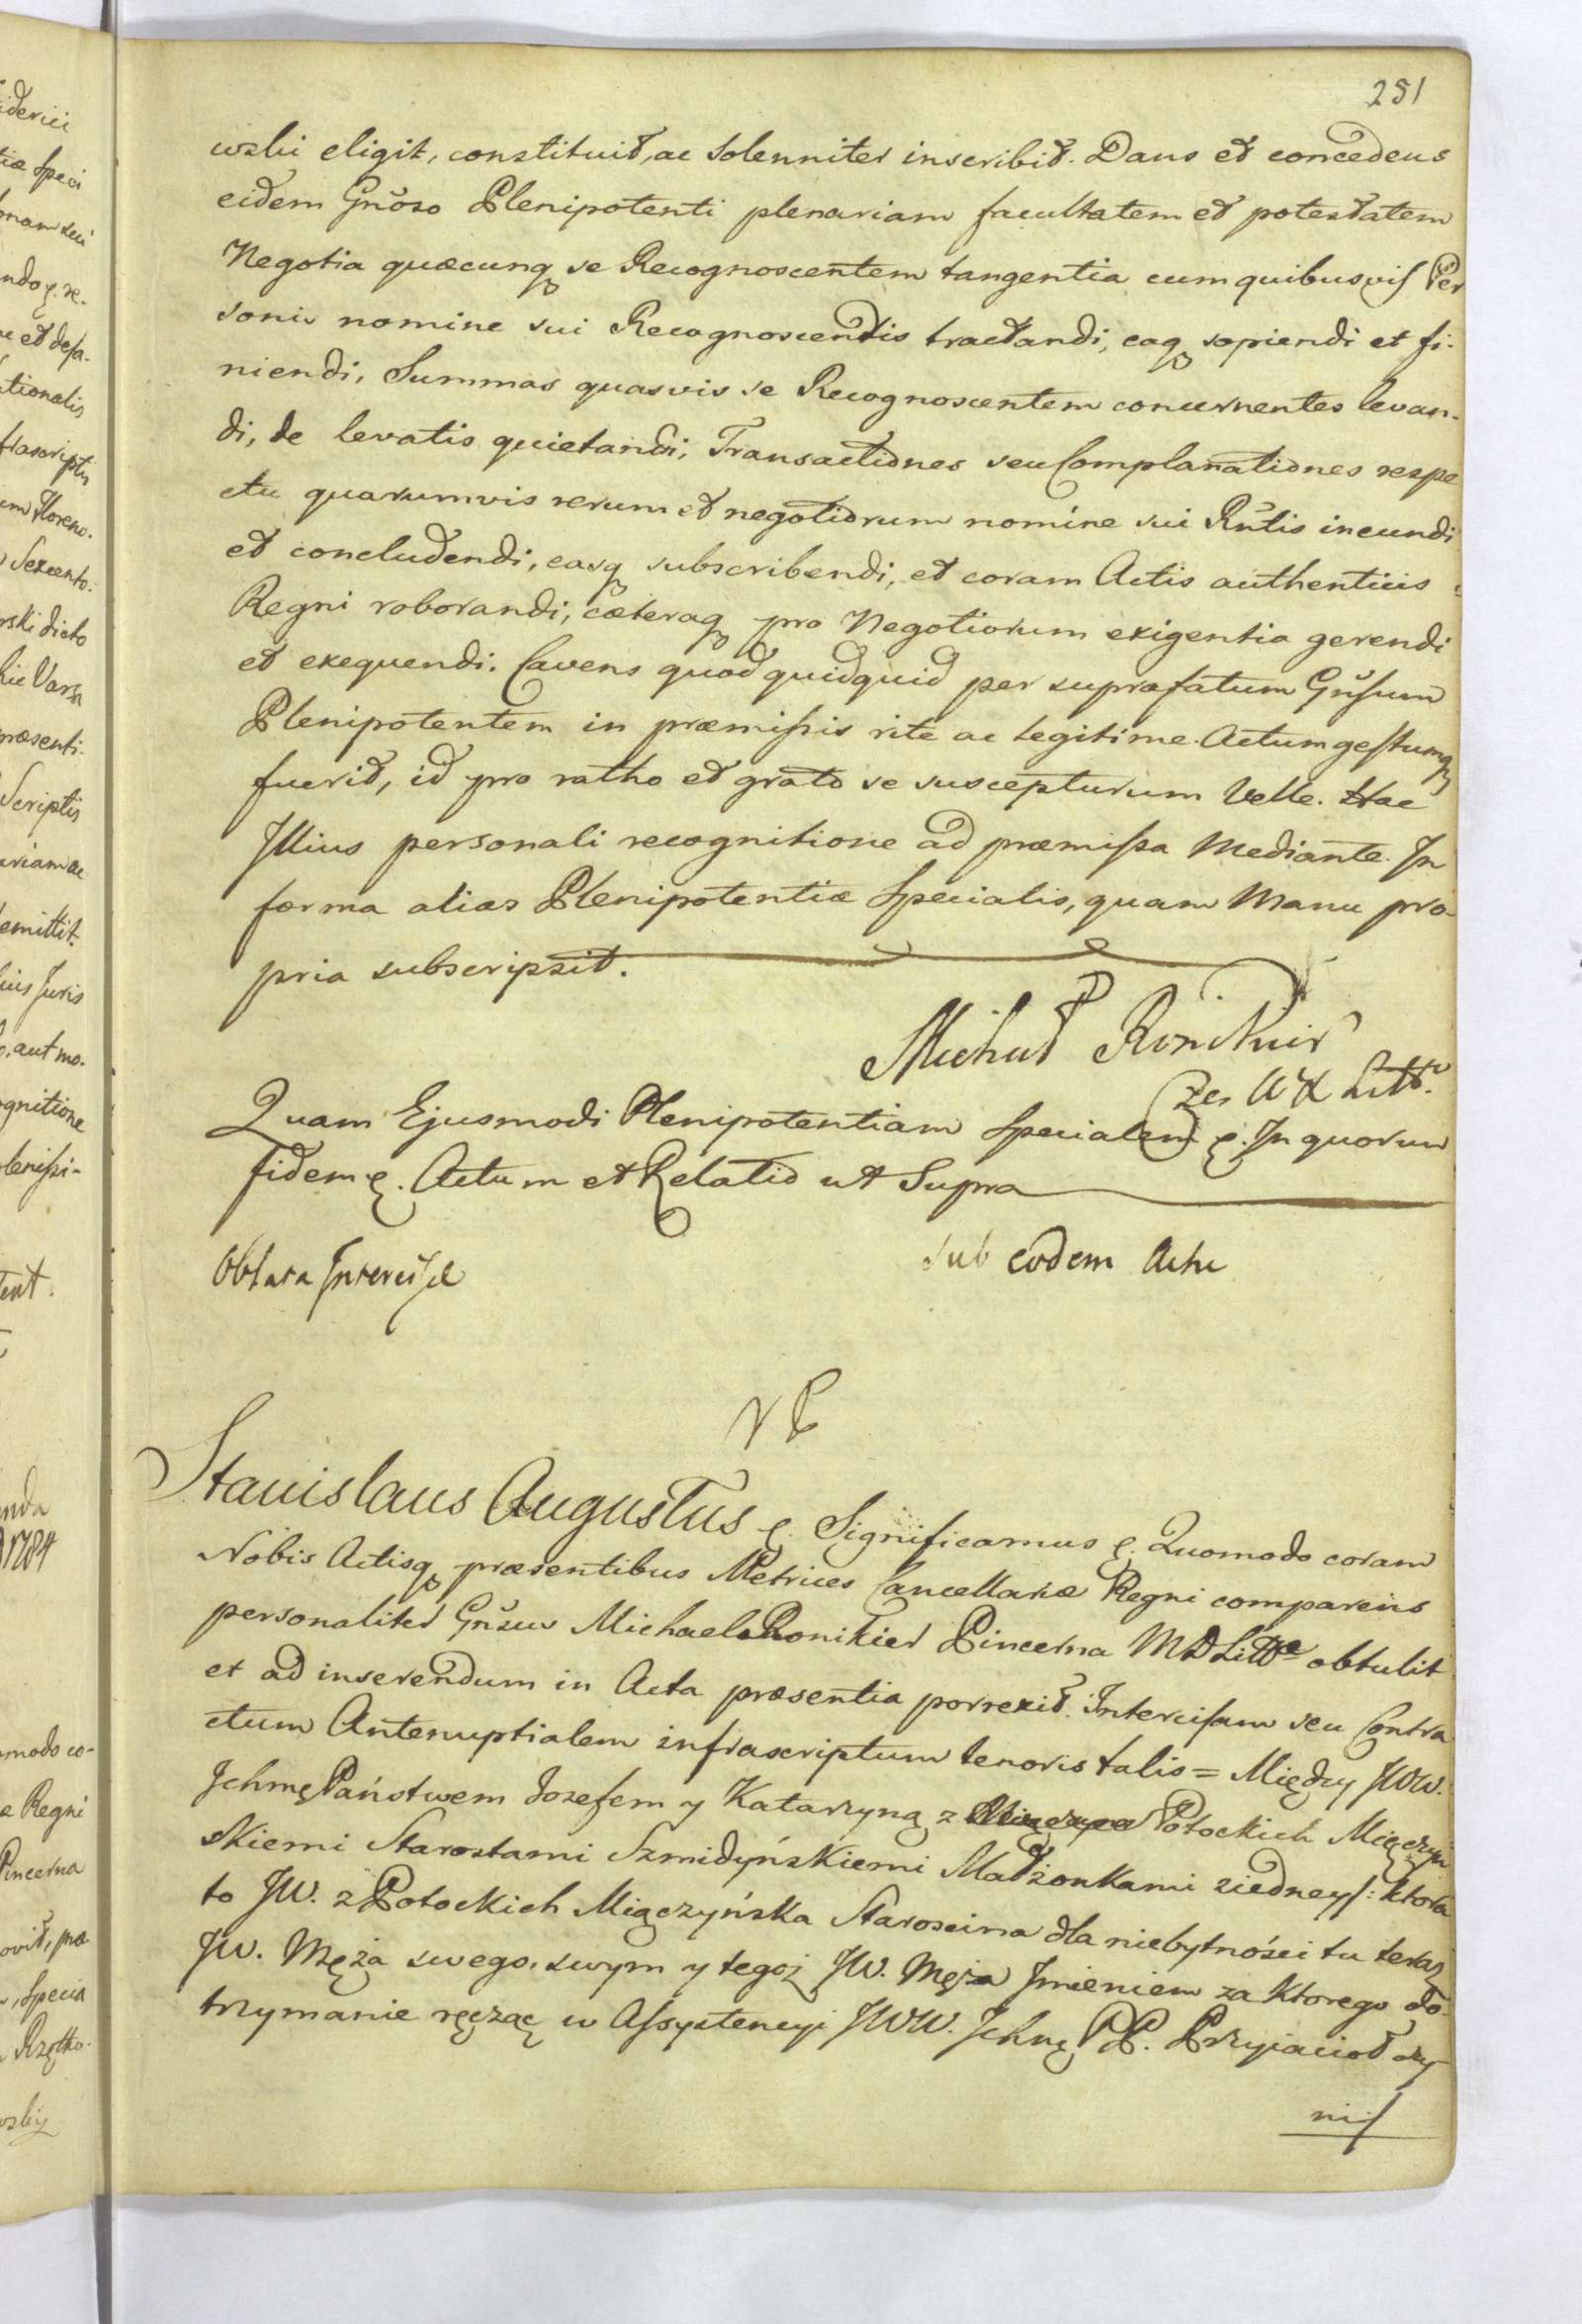 251
wski eligit, constituit, ac Solenniter inscribit. Dans et concedens
eidem Gnõso Plenipotenti plenariam facultatem et potestatem
Negotia quæcunq se Recognoscentem tangentia cum quibusvis Per
sonis nomine sui Recognoscentis tractandi, eaq sopiendi et fi-
niendi, Summas quasvis se Recognoscentem concernentes levan-
di, de levatis quietandi; Transactiones seu Complanationes respe
ctu quarumvis rerum et negotiorum nomine sui Rñtis ineundi
et concludendi, easq subscribendi, et coram Actis authenticis
Regni roborandi, cæteraq pro Negotiorum exigentia gerendi
et exequendi. Cavens quod quidquid per suprafatum Gñsum
Plenipotentem in præmissis rite ac legitime Actum gestumq
fuerit, id pro ratho et grato se suscepturum Velle. Hac
Illius personali recognitione ad præmissa Mediante. In
forma alias Plenipotentiæ Specialis, quam Manu pro-
pria subscripsit.
Michał Ronikier
Quam Ejusmodi Plenipotentiam Specialem &. In quorum
fidem &. Actum et Relatio ut Supra
Oblata Intercisæ
sub eodem Actu
Stanislaus Augustus &. Significamus &. Quomodo coram
Nobis Actisq præsentibus Metrices Cancellariæ Regni comparens
personaliter Gñsus Michael Ronikier Pincerna MDLittæ obtulit
et ad inserendum in Acta præsentia porrexit. Intercisam seu Contra
ctum Antenuptialem infrascriptum tenoris talis = Między JWW.
Jchmę Państwem Jozefem y Katarzyną z Potockich Miączyn
skiemi Starostami Szmidyńskiemi Małżonkami ziedney /: ktora
to JW. z Potockich Miączyńska Starościna dla niebytności tu teraz
JW. Męża swego, swym y tegoż JW. Męża Jmieniem za ktorego do-
trzymanie ręcząc w Assystencyi JWW. Jchmę PP. Przyiacioł czy
ni /